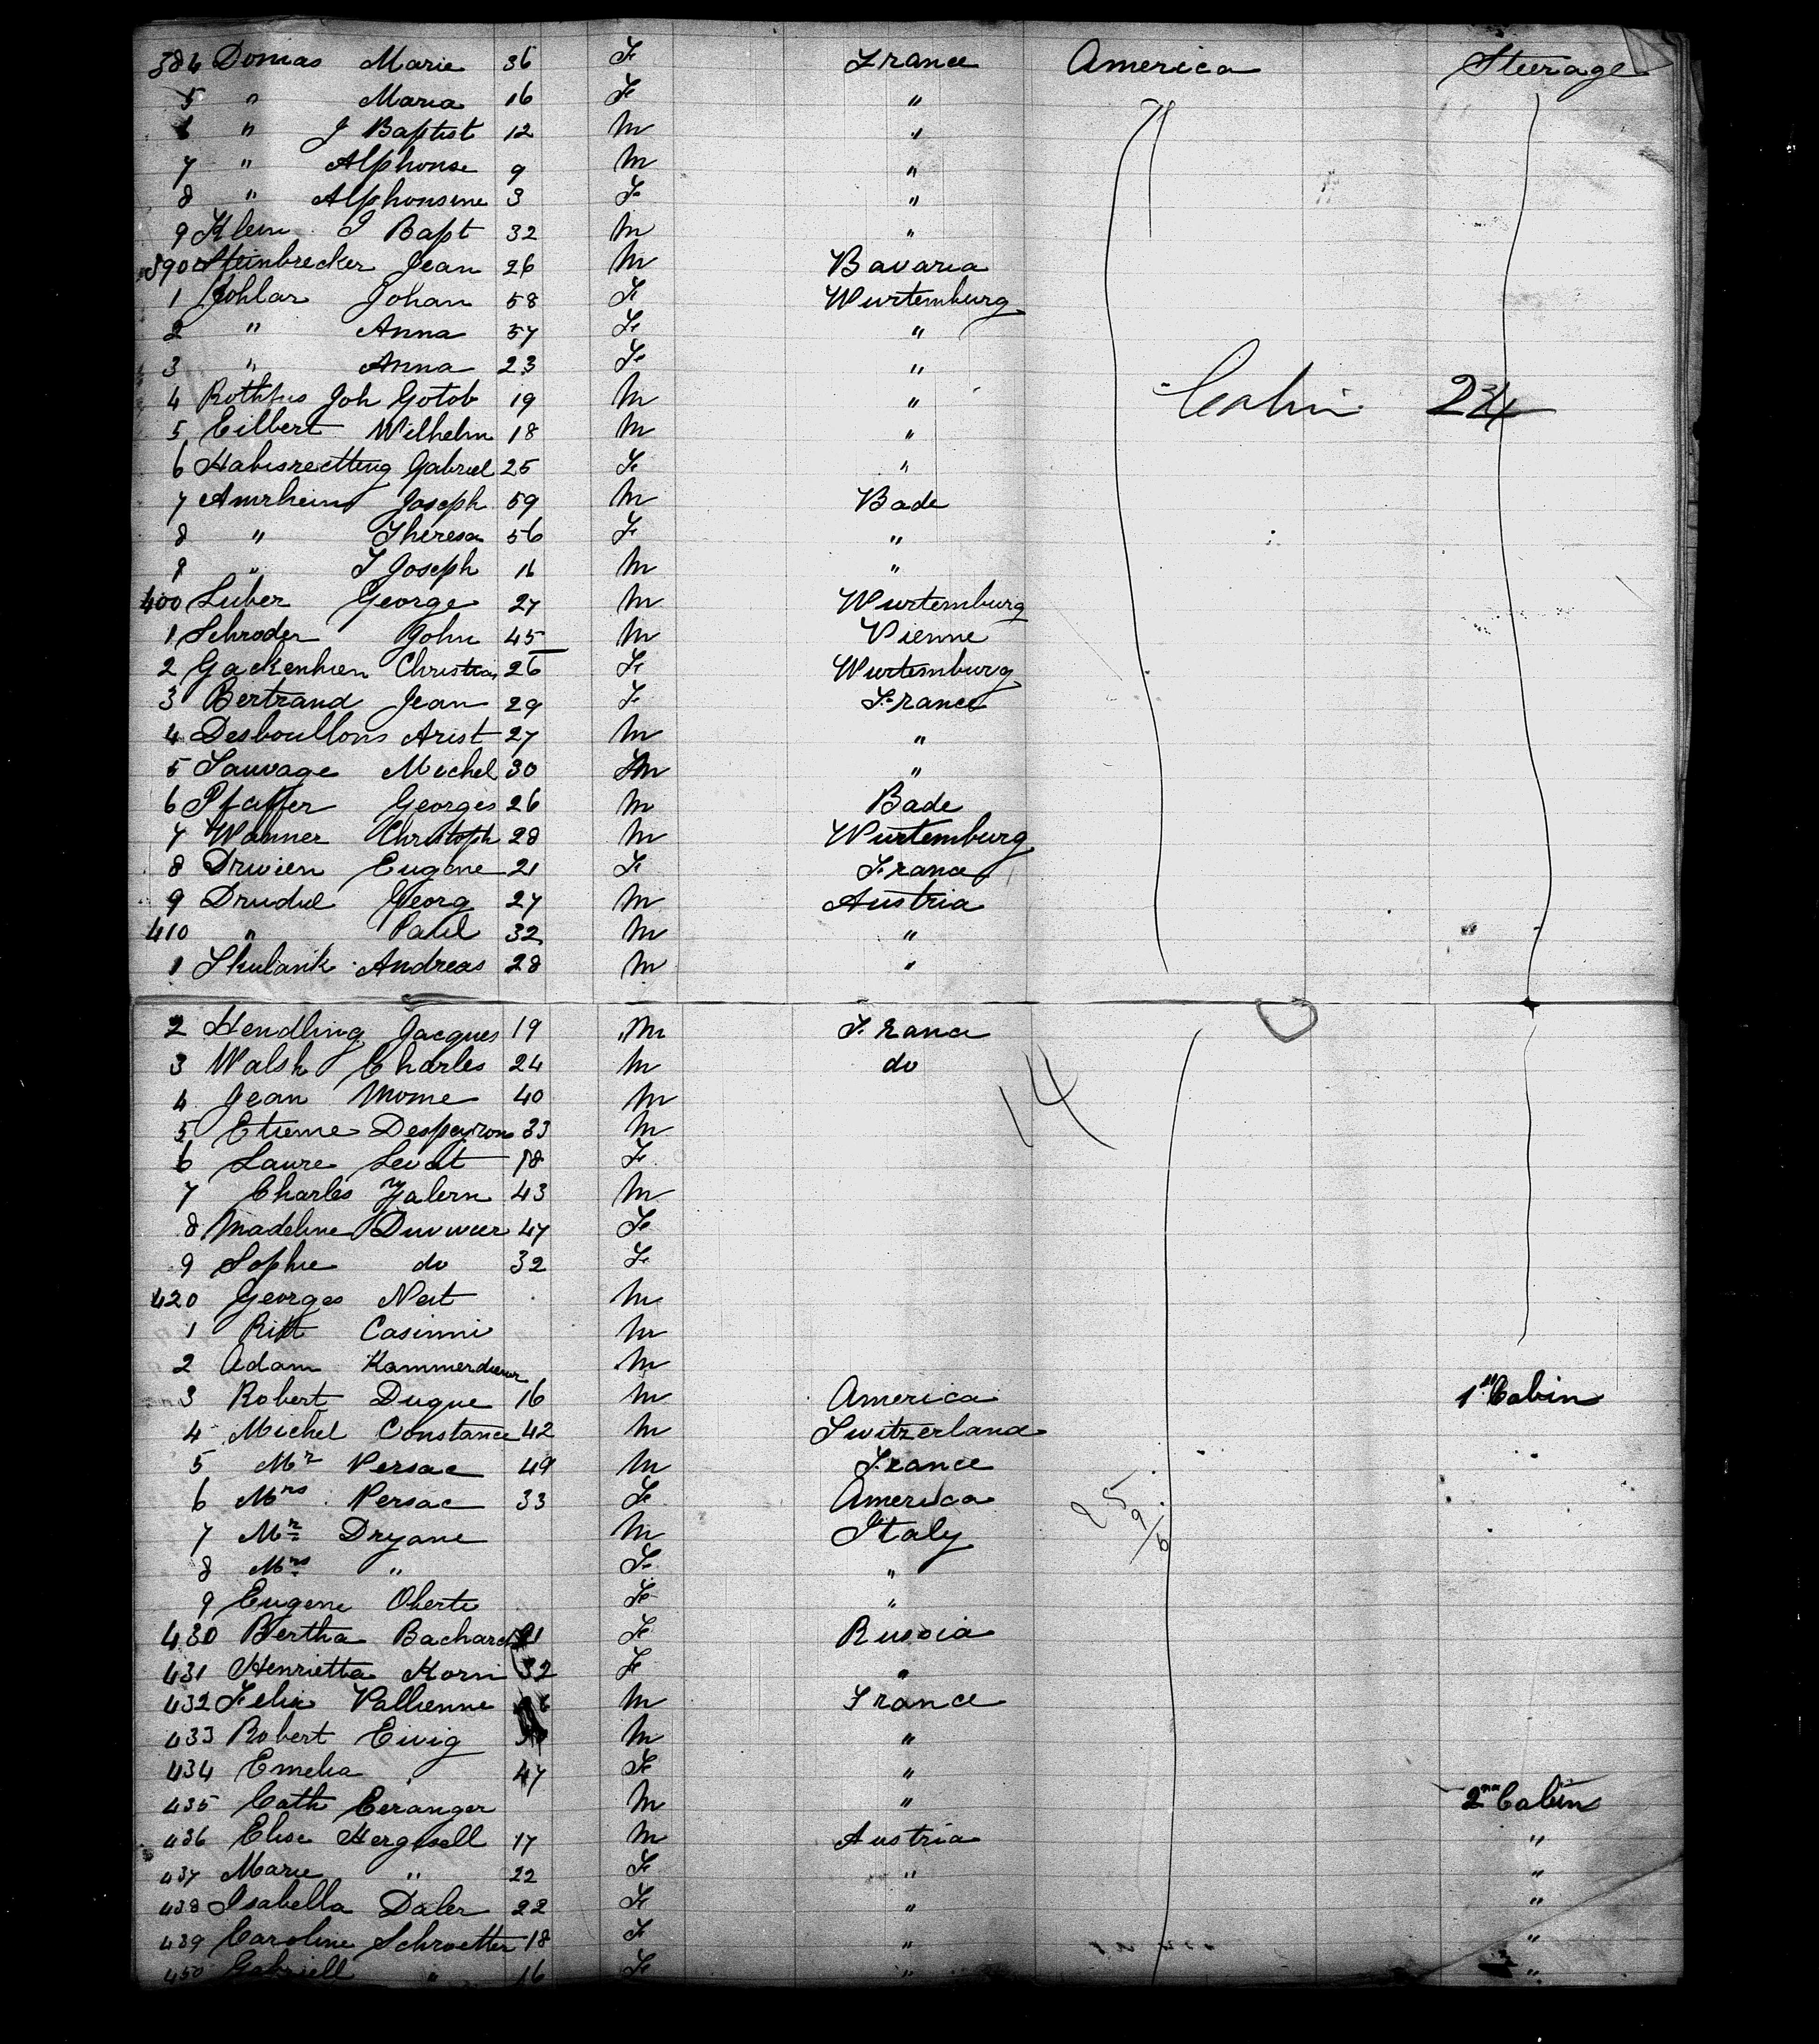 384 Domas Marie 36 F France America Steerage
5 " Maria 16 F "
6 " J Baptist 12 M "
7 " Alphonse 9 M "
8 " Alphonsine 3 F "
9 Klein J Bapt 32 M "
390 Steinbrecker Jean 26 M Bavaria
1 Johlar Johan 58 F Wurtemburg
2 " Anna 57 F "
3 " Anna 23 F "
4 Rothfus Joh Gotob 19 M "
Cabin 24
5 Eilbert Wilhelm 18 M "
6 Habisreetting Gabriel 25 F "
7 Amrhein Joseph 59 M Bade
8 " Theresa 56 F "
9 " J Joseph 16 M "
400 Luber George 27 M Wurtemburg
1 Schroder John 45 M Vienne
2 Gackenhien Christian 26 F Wurtemburg
3 Bertrand Jean 29 F France
4 Desboullons Arist 27 M "
5 Sauvage Michel 30 M "
6 Pfaffer Georges 26 M Bade
7 Wanner Christoph 28 M Wurtemburg
8 Drivien Eugene 21 F France
9 Drudul Georg 27 M Austria
410 " Paul 32 M "
1 Skulavik Andreas 28 M "
2 Hendling Jacques 19 M France
3 Walsh Charles 24 M do
4 Jean Mome 40 M
14
5 Etienne Despeyrons 33 M
6 Laure Levat 18 F
7 Charles Yalern 43 M
8 Madeline Duvivier 47 F
9 Sophie do 32 F
420 Georges Neit M
1 Ritt Casimir M
2 Adam Kammerdiener M
3 Robert Duque 16 M America 1st Cabin
4 Michel Constance 42 M Switzerland "
5 Mr Persac 49 M France
6 Mrs Persac 33 F America
7 Mr Dryane M Italy
8 Mrs " F "
9 Eugene Oberti F "
430 Bertha Bacharch 21 F Russia
431 Henrietta Korn 32 F "
432 Felix Vallienne M France
433 Robert Ewig M "
434 Emelia " 47 F "
435 Cath Ceranger M " 2nd Cabin
436 Elise Hergesell 17 M Austria "
437 Marie " 22 F " "
438 Isabella Daler 22 F " "
439 Caroline Schroetter 18 F " "
450 Gabriell " 16 F " "